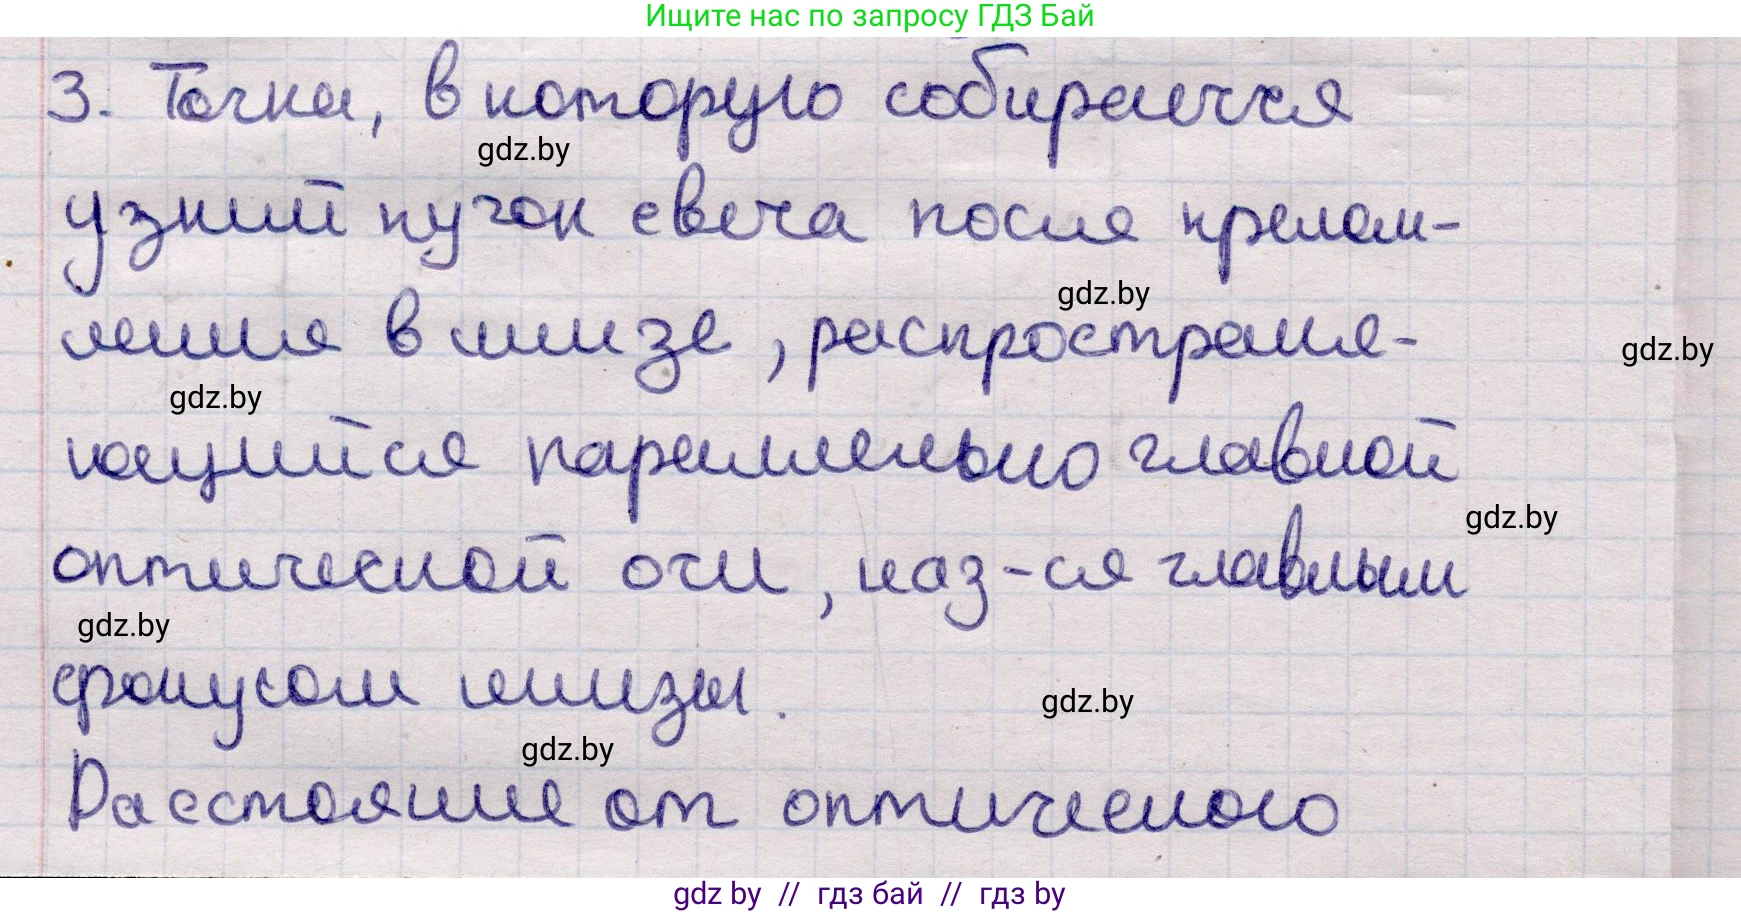 Ищите нас по запросу ГДЗ Бай
3. Точка, в которую собирается
gdz.by
узкий пучок света после прелом-
gdz.by
ления в линзе, распространя-
gdz.by
gdz.by
ющийся параллельно главной
gdz.by
оптической оси, наз-ся главным
gdz.by
фокусом линзы.
gdz.by
gdz.by
Расстояние от оптического
gdz by // гдз бай // гдз by